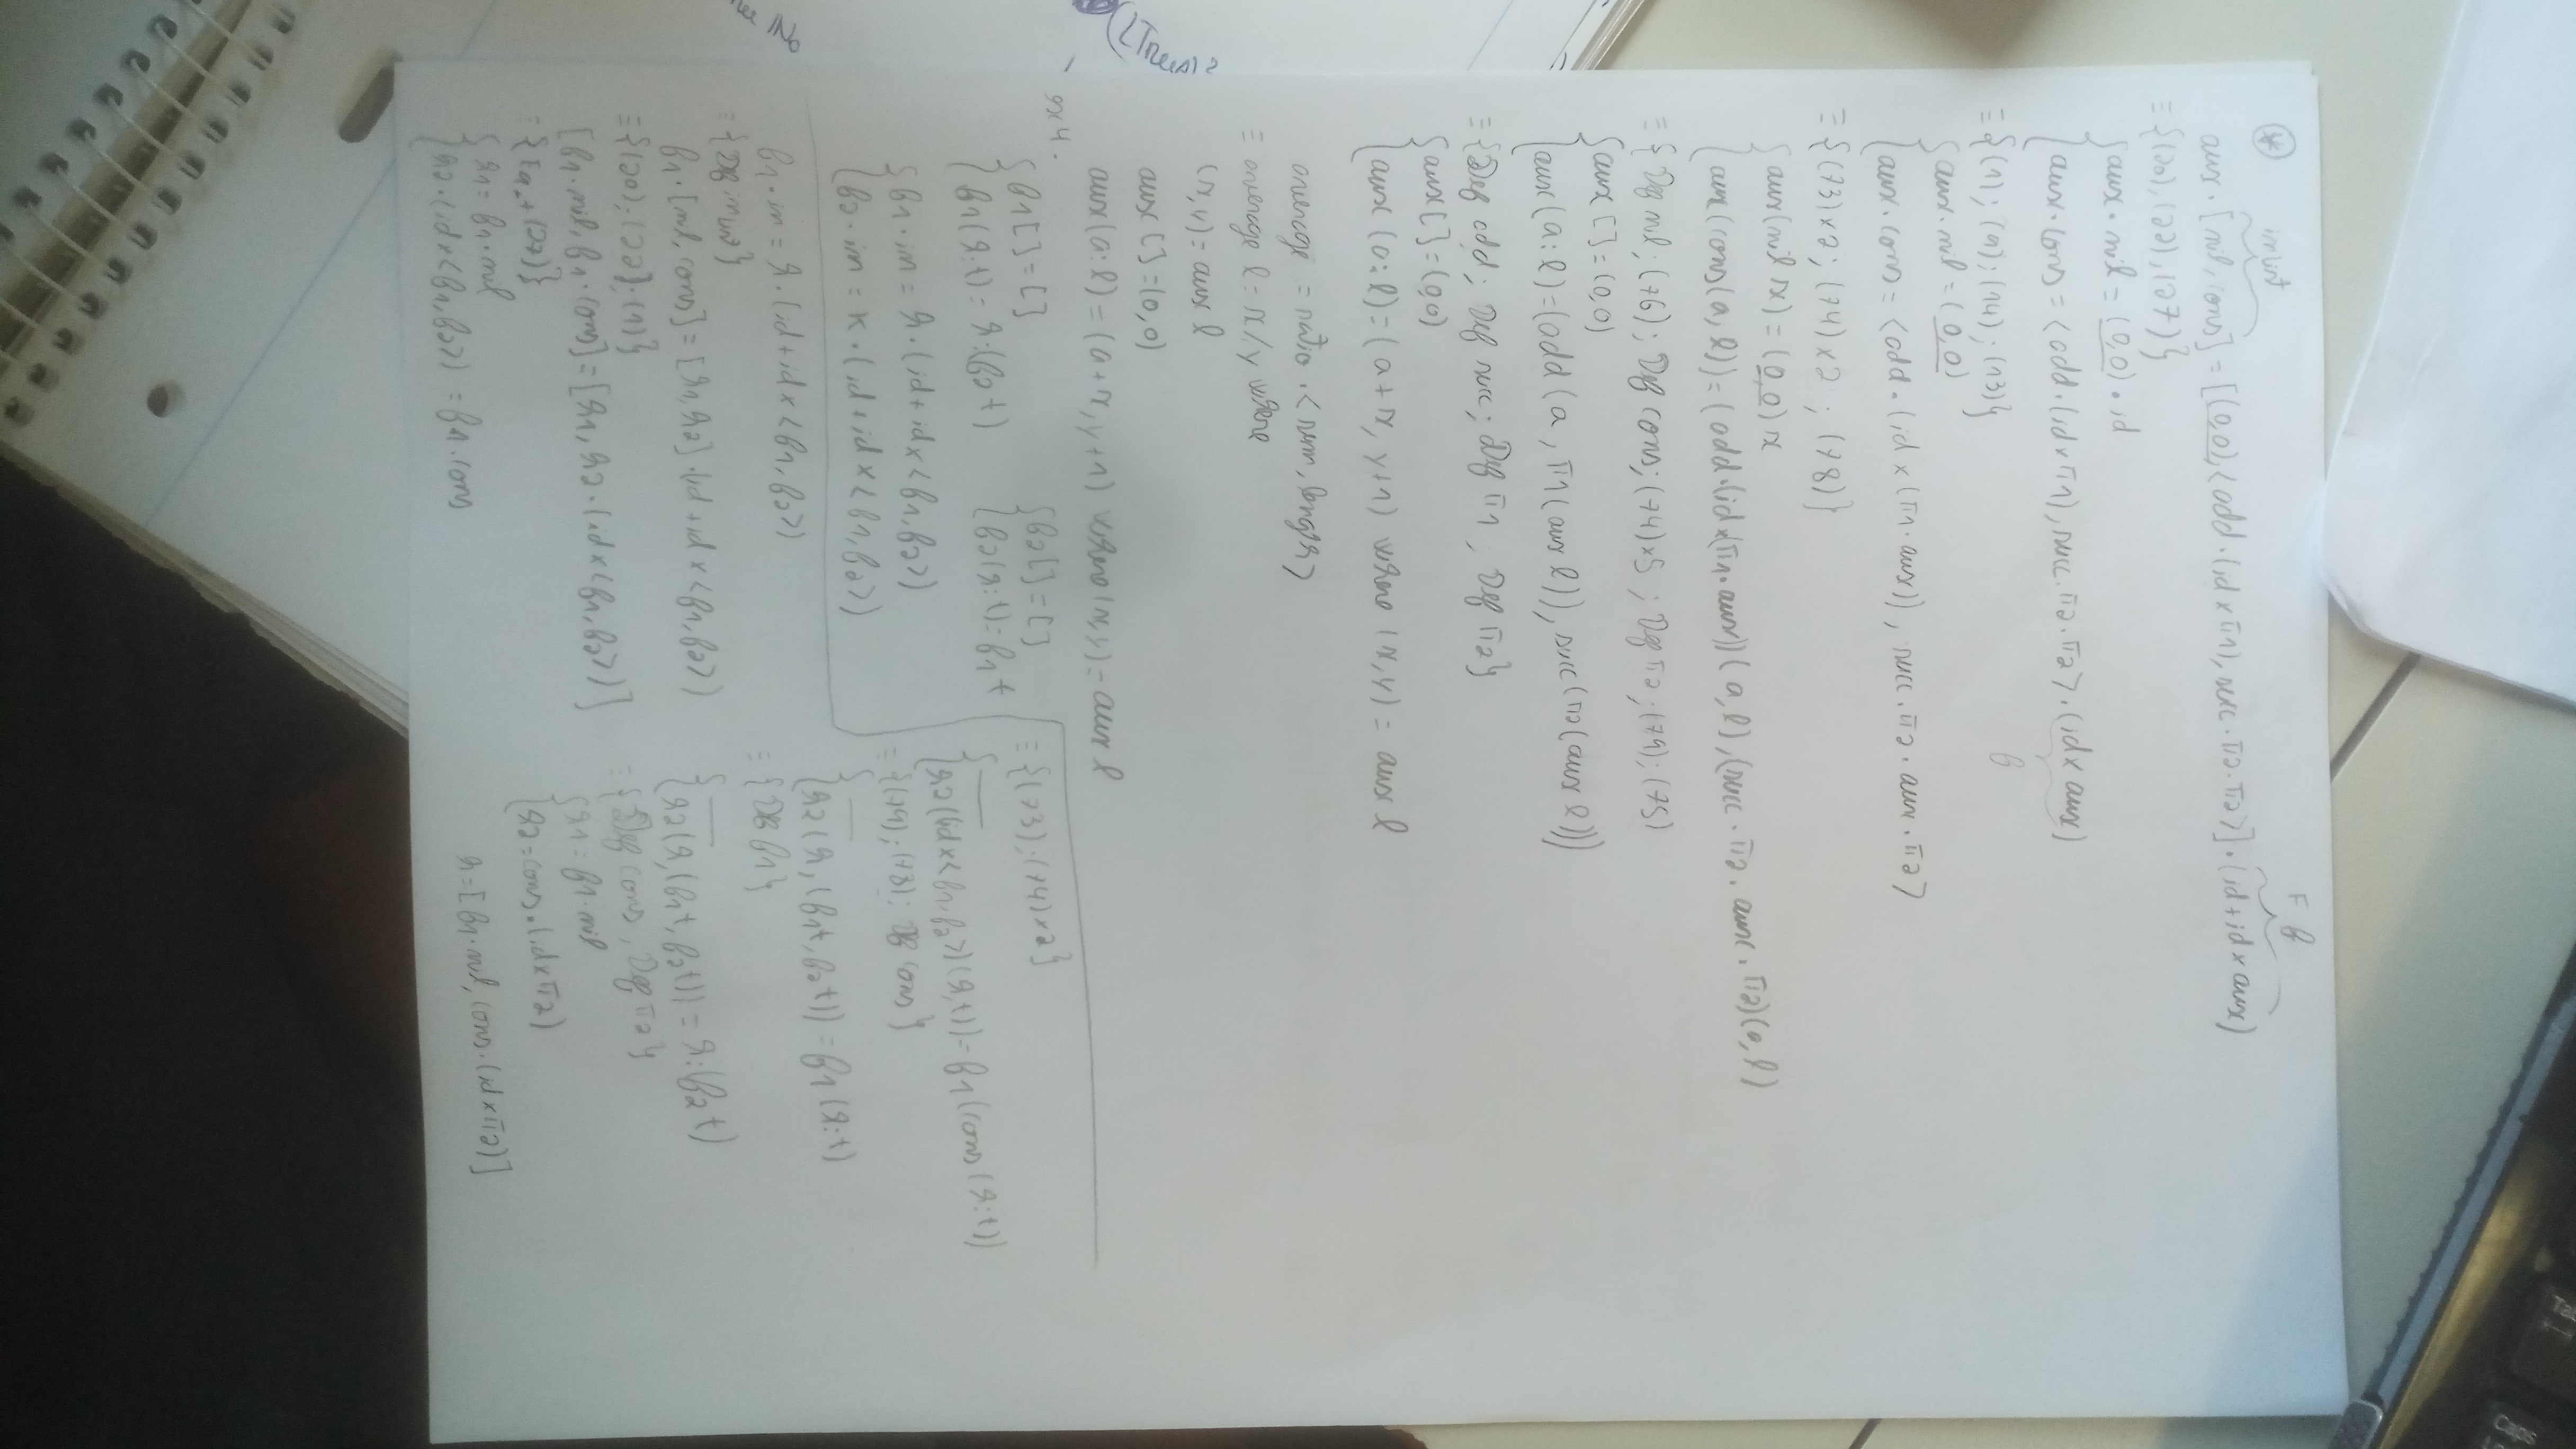 (*)
inlist
F f
aux · [nil, cons] = [(0,0), <add · (id × π1), succ · π2 · π2>] · (id + id × aux)
≡ {(20), (22), (27)}
{ aux · nil = (0,0) · id
{ aux · cons = <add · (id × π1), succ · π2 · π2> · (id × aux)
f
≡ {(1); (9); (14); (13)}
{ aux · nil = (0,0)
{ aux · cons = <add · (id × (π1 · aux)), succ · π2 · aux · π2>
≡ {(73)×2; (74)×2; (78)}
{ aux (nil x) = (0,0) x
{ aux (cons (a, l)) = (add · (id × (π1 · aux)) (a, l), (succ · π2 · aux · π2) (a, l)
≡ { Def nil; (76); Def cons; (74)×5; Def π2; (79); (75)
{ aux [] = (0,0)
{ aux (a:l) = (add (a, π1 (aux l)), succ (π2 (aux l)))
≡ {Def add; Def succ; Def π1; Def π2}
{ aux [] = (0,0)
{ aux (a:l) = (a+x, y+1) where (x,y) = aux l
average = ratio · <sum, length>
≡ average l = x/y where
(x,y) = aux l
aux [] = (0,0)
aux (a:l) = (a+x, y+1) where (x,y) = aux l
ex 4.
{ f1 [] = []
{ f1 (h:t) = h:(f2 t)
{ f2 [] = []
{ f2 (h:t) = f1 t
{ f1 · in = h · (id + id × <f1, f2>)
{ f2 · in = k · (id + id × <f1, f2>)
f1 · in = h · (id + id × <f1, f2>)
≡ {Def inlist}
f1 · [nil, cons] = [h1, h2] · (id + id × <f1, f2>)
≡ {(20); (22); (1)}
[f1 · nil, f1 · cons] = [h1, h2 · (id × <f1, f2>)]
≡ {Eq + (27)}
{ h1 = f1 · nil
{ h2 · (id × <f1, f2>) = f1 · cons
≡ {(73); (74)×2}
{ ——
{ h2 ((id × <f1, f2>) (h, t)) = f1 (cons (h:t))
≡ {(79); (78); Def cons}
{ ——
{ h2 (h, (f1 t, f2 t)) = f1 (h:t)
≡ {Def f1}
{ ——
{ h2 (h, (f1 t, f2 t)) = h:(f2 t)
≡ {Def cons, Def π2}
{ h1 = f1 · nil
{ h2 = cons · (id × π2)
h = [f1 · nil, cons · (id × π2)]
(LTree)2